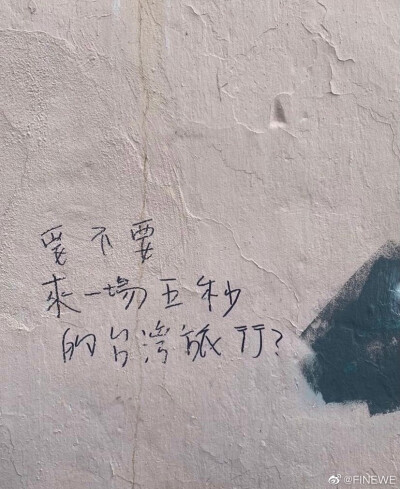 要不要
來一場五秒
的台灣旅行?
@FINEWE